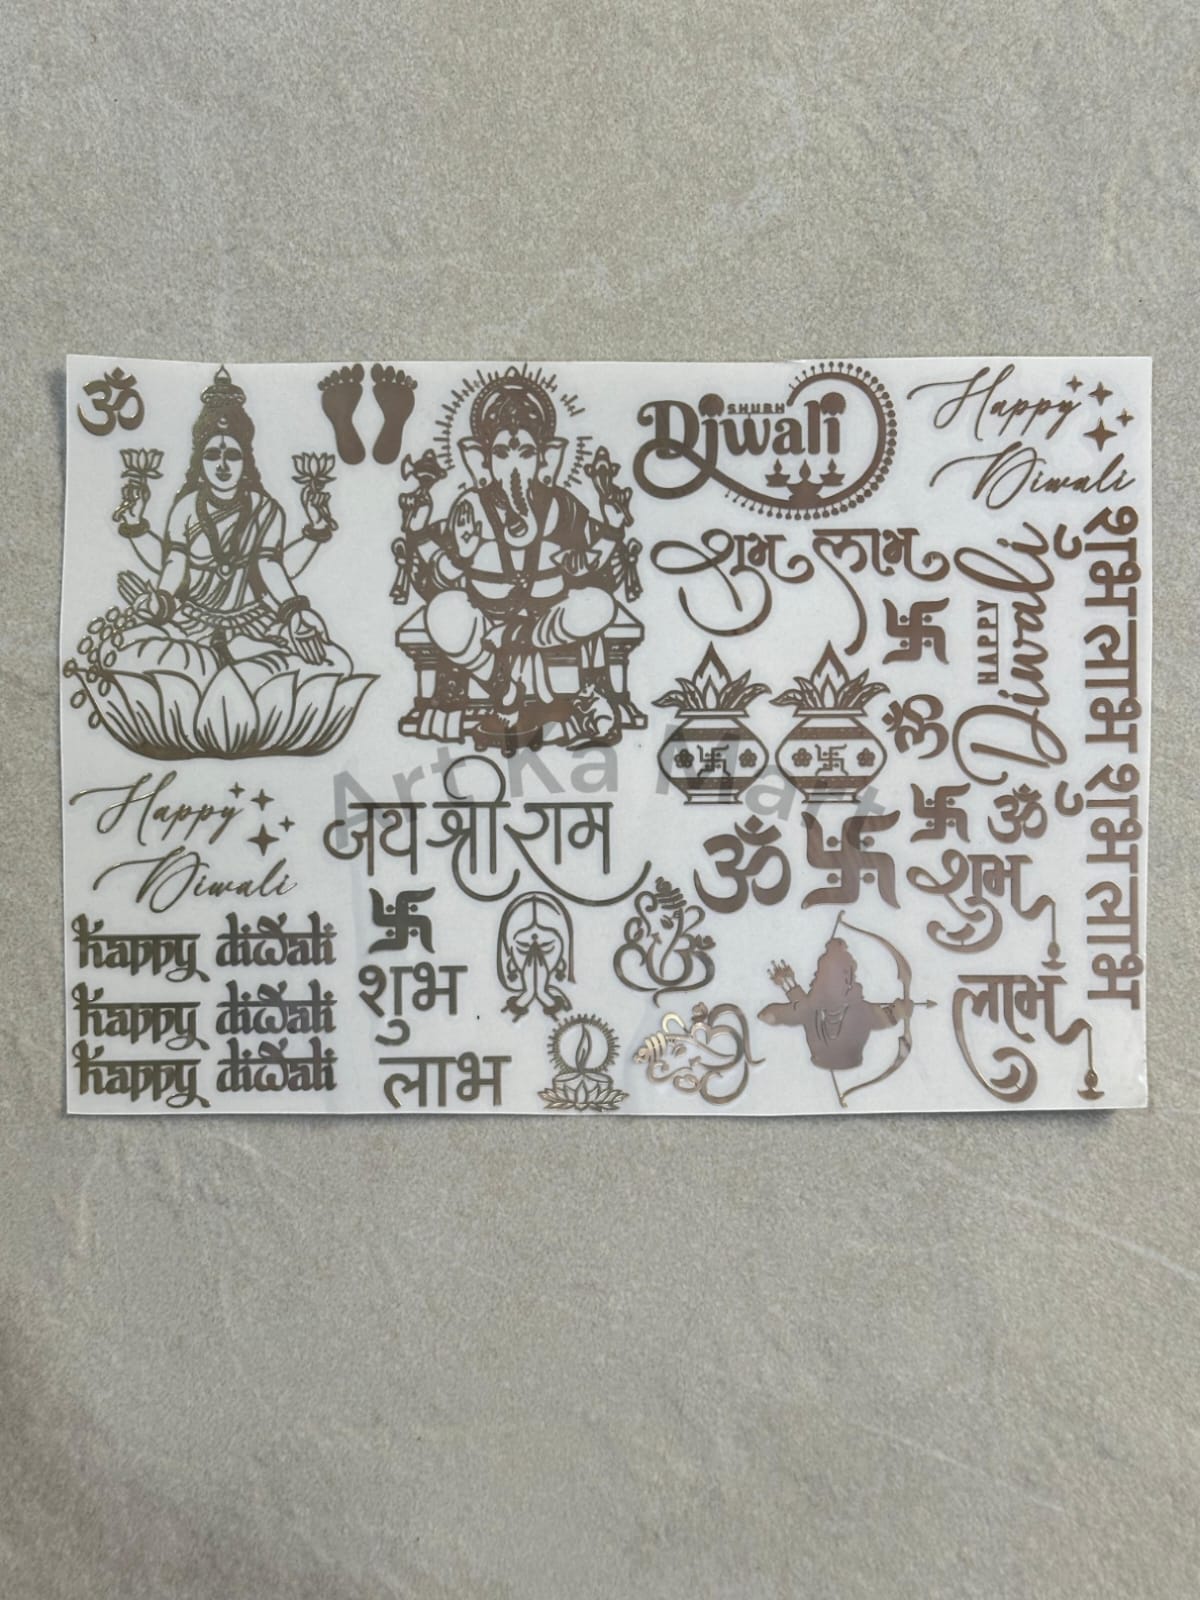 ॐ
SHUBH
Diwali
Happy
Diwali
शुभ लाभ
HAPPY
Diwali
शुभ लाभ शुभ लाभ
ॐ
Art Ka Mart
Happy
Diwali
जय श्री राम
ॐ
ॐ
शुभ
लाभ
happy diwali
happy diwali
happy diwali
शुभ
लाभ